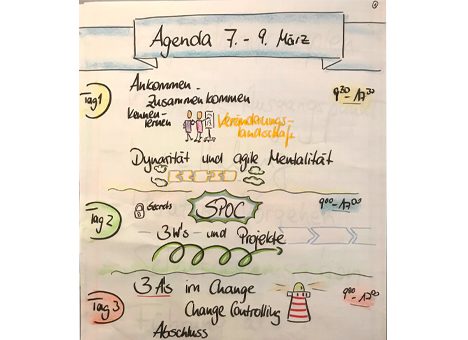 Agenda 7. - 9. März
Tag 1
Ankommen -
Zusammenkommen
9³⁰ - 17⁰⁰
Kennen-
lernen
Veränderungs-
landschaft
Dynarität und agile Mentalität
Tag 2
Secrets
SPOC
9⁰⁰ - 17⁰⁰
3 W's - und Projekte
Tag 3
3 A's im Change
Change Controlling
9⁰⁰ - 17⁰⁰
Abschluss